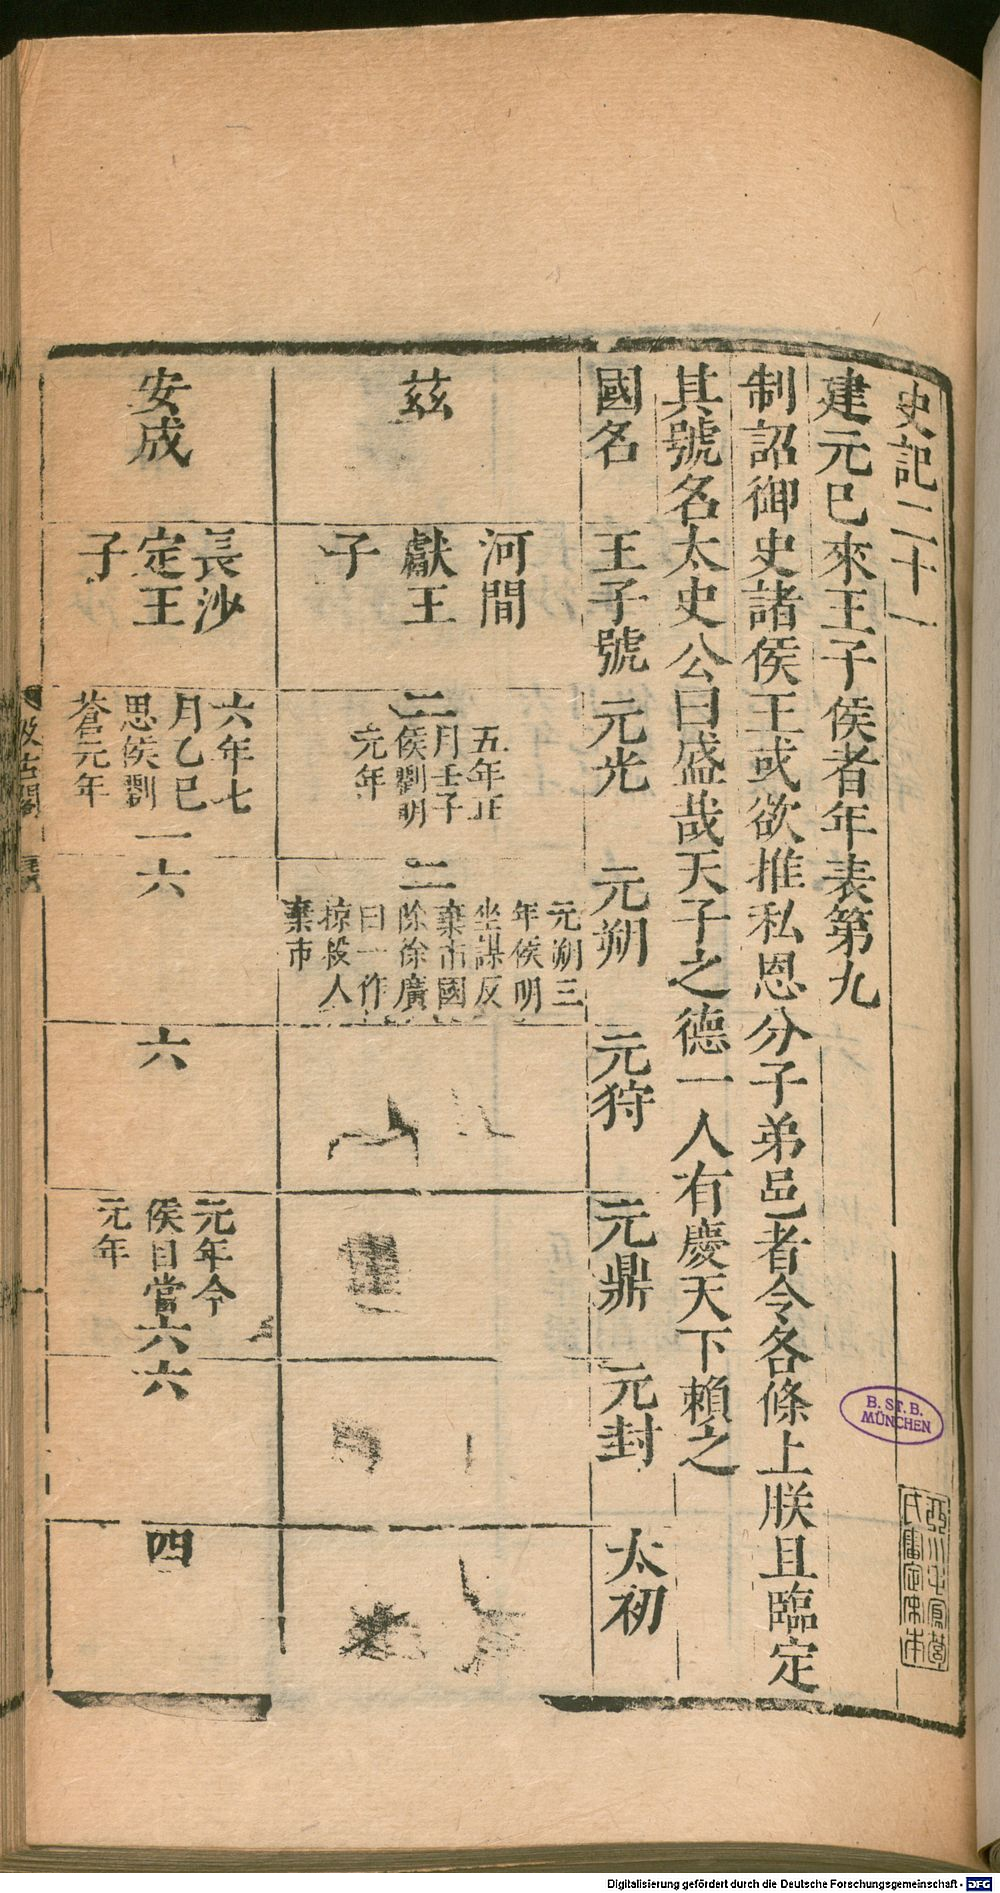 史記二十一
建元已來王子侯者年表第九
制詔御史諸侯王或欲推私恩分子弟邑者令各條上朕且臨定
其號名太史公曰盛哉天子之德一人有慶天下賴之
國名
王子號
元光
元朔
元狩
元鼎
元封
太初
茲
河間
獻王
子
二
五年正
月壬子
侯劉明
元年
二
元朔三
年侯明
坐謀反
棄市國
除徐廣
曰一作
掠殺人
棄市
安成
長沙
定王
子
六年七
月乙巳
思侯劉
蒼元年
一
六
六
元年今
侯自當
元年
六
六
四
汲古閣
B. ST. B.
MÜNCHEN
Digitalisierung gefördert durch die Deutsche Forschungsgemeinschaft - DFG